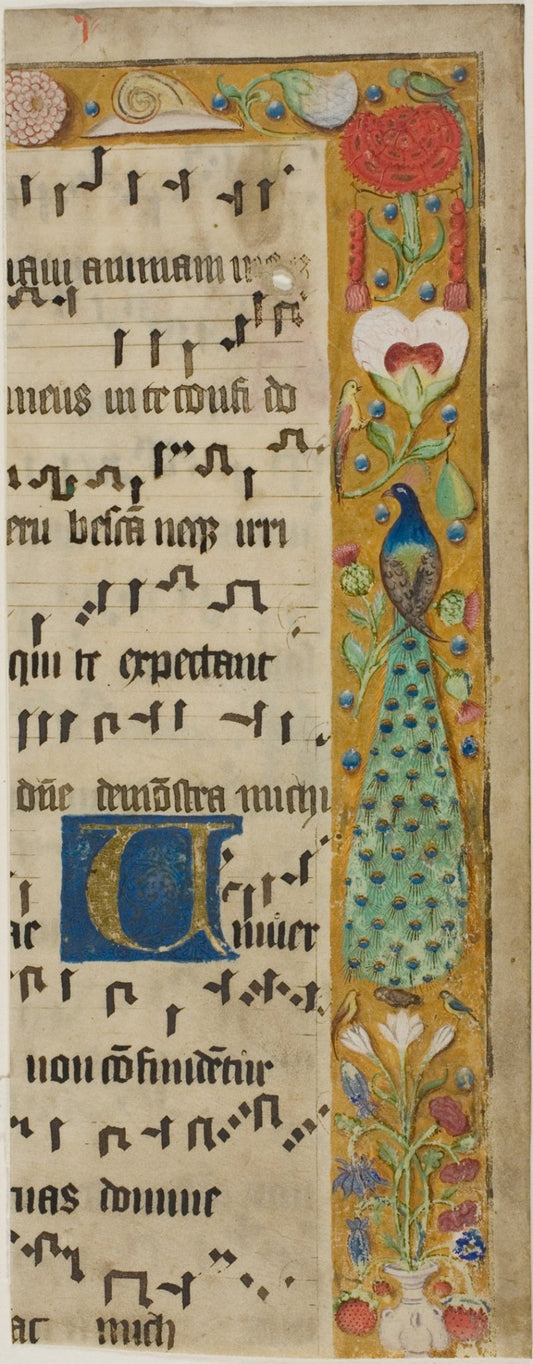 aui animam me
meus in te confi do
eru bescā neqꝫ irri
qui te expectant
dn̄e demōstra michi
ac Univer
non cōfundētur
uias domine
ac mich